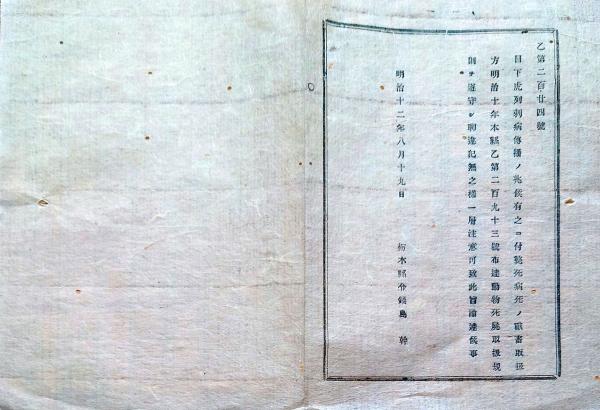 乙第二百廿四號
目下虎列刺病傳播ノ兆候有之ニ付斃死病死ノ獸畜取扱
方明治十年本縣乙第二百九十三號布達動物死屍取扱規
則ヲ遵守シ聊違犯無之樣一層注意可致此旨諭達候事
明治十二年八月十九日
栃木縣令鍋島 幹